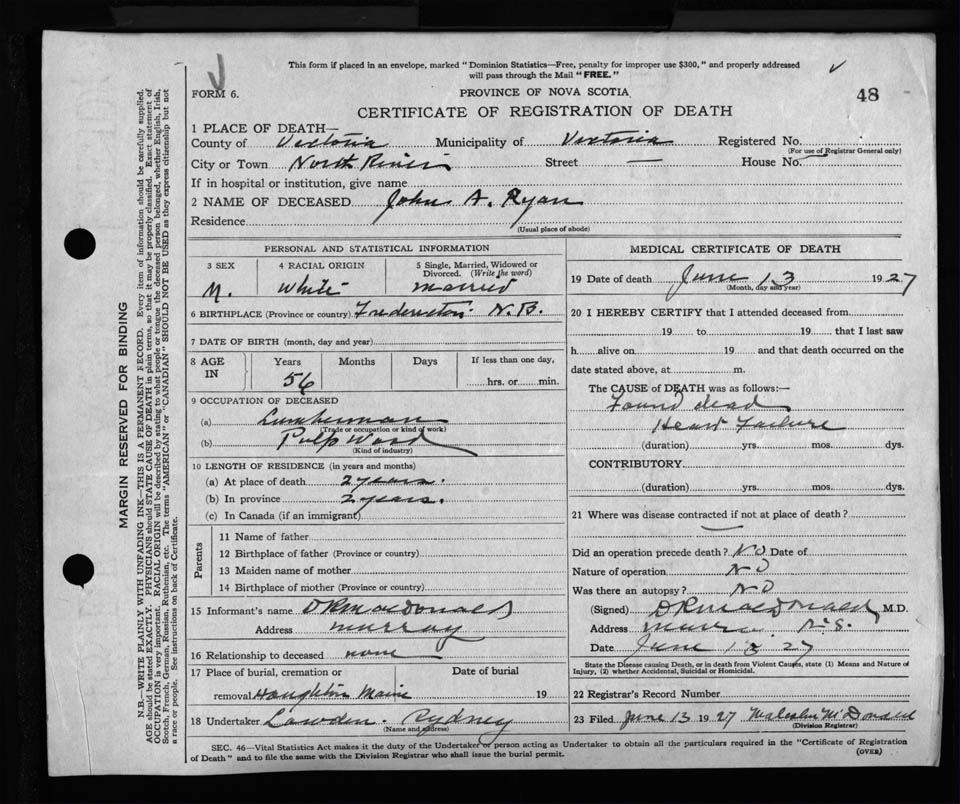 This form if placed in an envelope, marked "Dominion Statistics—Free, penalty for improper use $300," and properly addressed
will pass through the Mail "FREE."
FORM 6. PROVINCE OF NOVA SCOTIA 48
CERTIFICATE OF REGISTRATION OF DEATH
1 PLACE OF DEATH—
County of Victoria Municipality of Victoria Registered No.
(For use of Registrar General only)
City or Town North River Street — House No.
If in hospital or institution, give name
2 NAME OF DECEASED John A. Ryan
Residence
(Usual place of abode)
PERSONAL AND STATISTICAL INFORMATION
3 SEX 4 RACIAL ORIGIN 5 Single, Married, Widowed or
Divorced. (Write the word)
M. White married
6 BIRTHPLACE (Province or country) N.B.
7 DATE OF BIRTH (month, day and year)
8 AGE IN Years Months Days If less than one day,
56 hrs. or min.
9 OCCUPATION OF DECEASED
(a) Lumberman
(Trade or occupation or kind of work)
(b) Pulp Wood
(Kind of industry)
10 LENGTH OF RESIDENCE (in years and months)
(a) At place of death 2 years.
(b) In province 2 years.
(c) In Canada (if an immigrant)
Parents
11 Name of father
12 Birthplace of father (Province or country)
13 Maiden name of mother
14 Birthplace of mother (Province or country)
15 Informant's name D R MacDonald
Address Murray
16 Relationship to deceased none
17 Place of burial, cremation or Date of burial
removal Maine 19
18 Undertaker Sydney
(Name and address)
MEDICAL CERTIFICATE OF DEATH
19 Date of death June 13 1927
(Month, day and year)
20 I HEREBY CERTIFY that I attended deceased from
19 to 19 that I last saw
h alive on 19 and that death occurred on the
date stated above, at m.
The CAUSE of DEATH was as follows:—
Found dead
Heart Failure
(duration) yrs. mos. dys.
CONTRIBUTORY
(duration) yrs. mos. dys.
21 Where was disease contracted if not at place of death?
—
Did an operation precede death? NO Date of
Nature of operation NO
Was there an autopsy? NO
(Signed) D R MacDonald M.D.
Address N.S.
Date June 27
State the Disease causing Death, or in death from Violent Causes, state (1) Means and Nature of
Injury, (2) whether Accidental, Suicidal or Homicidal.
22 Registrar's Record Number
23 Filed June 13 1927 McDonald
(Division Registrar)
SEC. 46—Vital Statistics Act makes it the duty of the Undertaker or person acting as Undertaker to obtain all the particulars required in the "Certificate of Registration
of Death" and to file the same with the Division Registrar who shall issue the burial permit. (OVER)
MARGIN RESERVED FOR BINDING
N.B.—WRITE PLAINLY WITH UNFADING INK—THIS IS A PERMANENT RECORD. Every item of information should be carefully supplied.
AGE should be stated EXACTLY. PHYSICIANS should STATE CAUSE OF DEATH in plain terms, so that it may be properly classified. Exact statement of
OCCUPATION is very important. RACIAL ORIGIN will be described by stating to what people or tongue the deceased person belonged, whether English, Irish,
Scotch, French, German, Russian, Ruthenian, etc. The terms "AMERICAN" or "CANADIAN" SHOULD NOT BE USED as they express citizenship but not
a race or people. See instructions on back of Certificate.